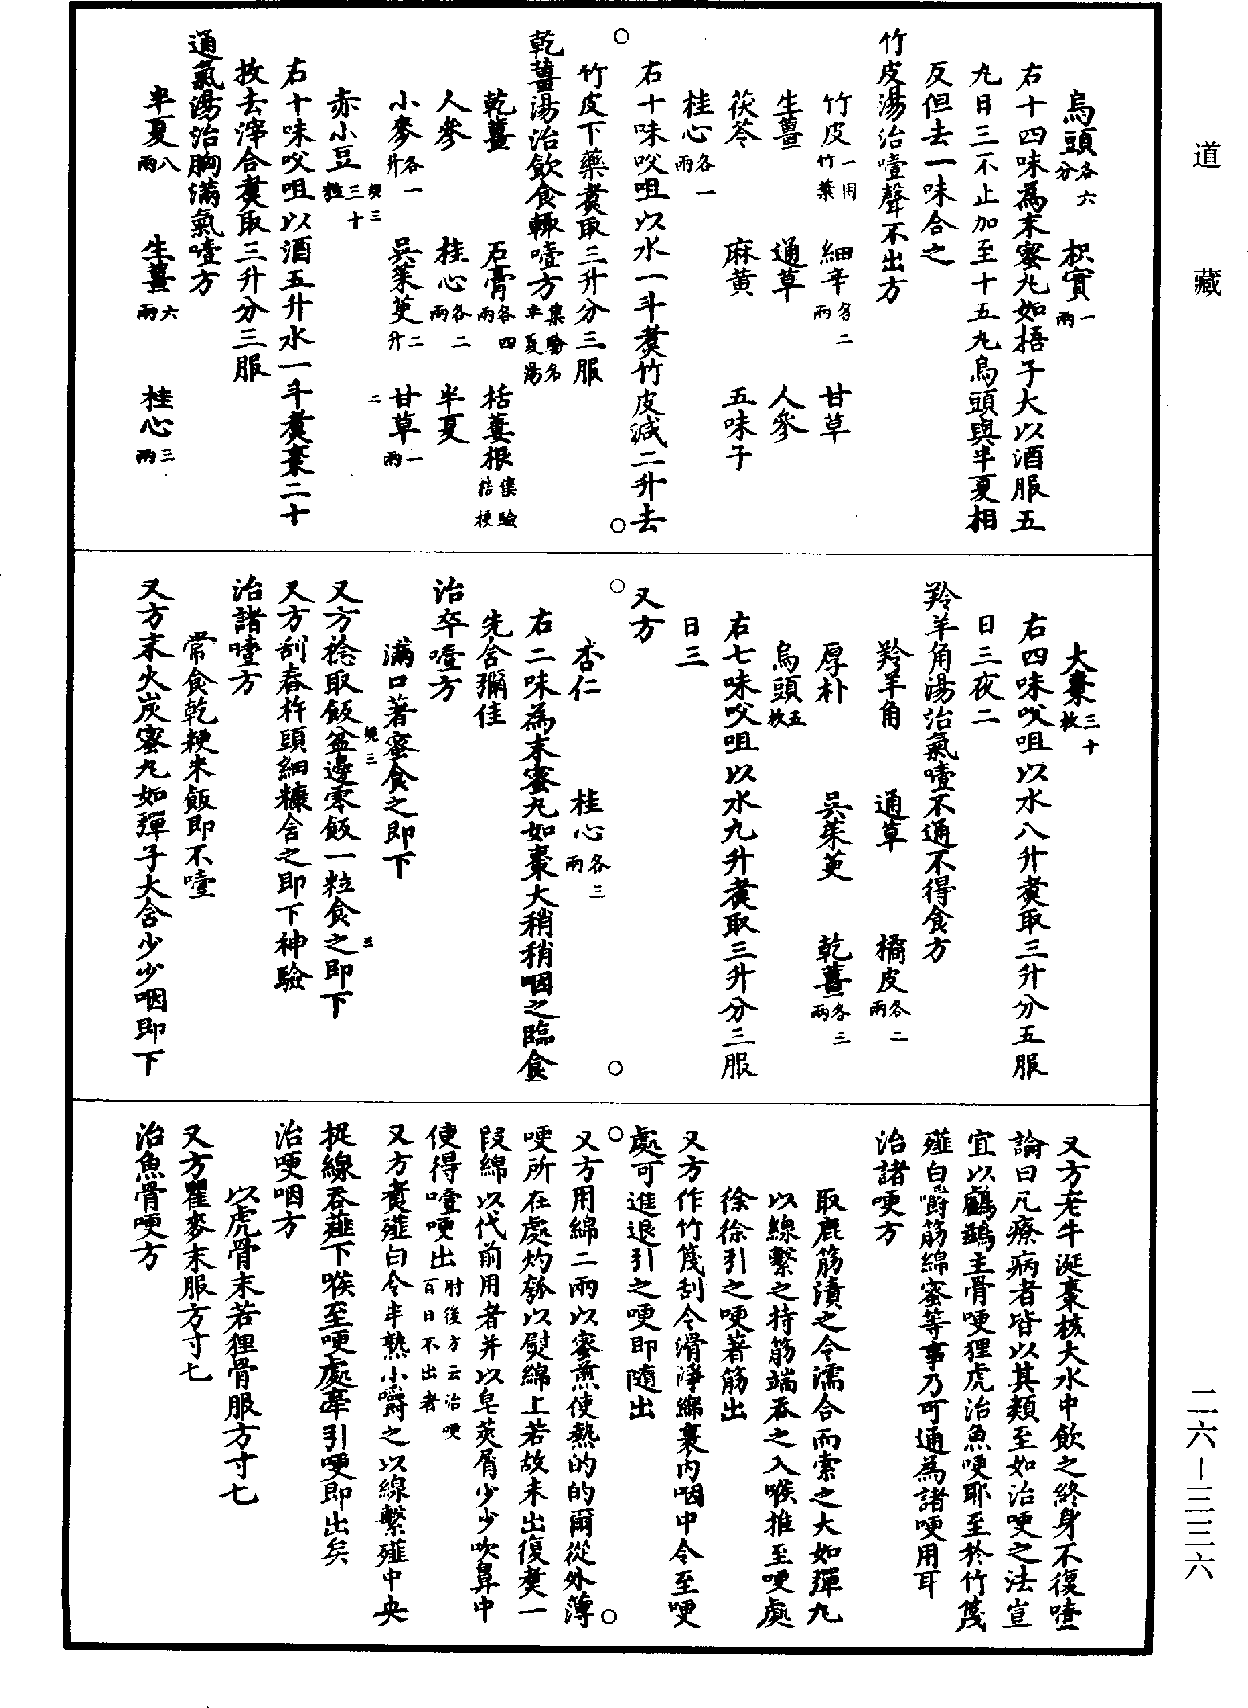 道藏
烏頭各六分　枳實一兩
右十四味為末蜜丸如梧子大以酒服五
丸日三不止加至十五丸烏頭與半夏相
反但去一味合之
竹皮湯治噎聲不出方
竹皮一用竹葉　細辛各二兩　甘草
生薑　通草　人參
茯苓　麻黃　五味子
桂心各一兩
右十味㕮咀以水一斗煑竹皮減二升去
竹皮下藥煑取三升分三服
乾薑湯治飲食輒噎方集驗名半夏湯
乾薑　石膏各四兩　栝蔞根集驗桔梗
人參　桂心各二兩　半夏
小麥各一升　吳茱萸二升　甘草一兩
赤小豆三十粒
右十味㕮咀以酒五升水一斗煑棗二十
枚去滓合煑取三升分三服
通氣湯治胸滿氣噎方
半夏八兩　生薑六兩　桂心三兩
大棗三十枚
右四味㕮咀以水八升煑取三升分五服
日三夜二
羚羊角湯治氣噎不通不得食方
羚羊角　通草　橘皮各二兩
厚朴　吳茱萸　乾薑各三兩
烏頭五枚
右七味㕮咀以水九升煑取三升分三服
日三
又方
杏仁　桂心各三兩
右二味為末蜜丸如棗大稍稍咽之臨食
先含彌佳
治卒噎方
滿口著蜜食之即下
又方捻取飯盆邊零飯一粒食之即下
又方刮舂杵頭細糠含之即下神驗
治諸噎方
常食乾粳米飯即不噎
又方末火炭蜜丸如彈子大含少少咽即下
又方老牛涎棗核大水中飲之終身不復噎
論曰凡療病者皆以其類至如治哽之法豈
宜以鸕鷀主骨哽狸虎治魚哽耶至於竹篾
薤白嚼筋綿蜜等事乃可通為諸哽用耳
治諸哽方
取鹿筋漬之令濡合而索之大如彈丸
以線繫之持筋端吞之入喉推至哽處
徐徐引之哽著筋出
又方作竹篾刮令滑淨綿裹內咽中令至哽
處可進退引之哽即隨出
又方用綿二兩以蜜煎使熱的的爾從外薄
哽所在處灼瓠以熨綿上若故未出復煑一
段綿以代前用者并以皂莢屑少少吹鼻中
使得嚏哽出肘後方云治哽百日不出者
又方煑薤白令半熟小嚼之以線繫薤中央
捉線吞薤下喉至哽處牽引哽即出矣
治哽咽方
以虎骨末若狸骨服方寸匕
又方瞿麥末服方寸匕
治魚骨哽方
二六—三三六